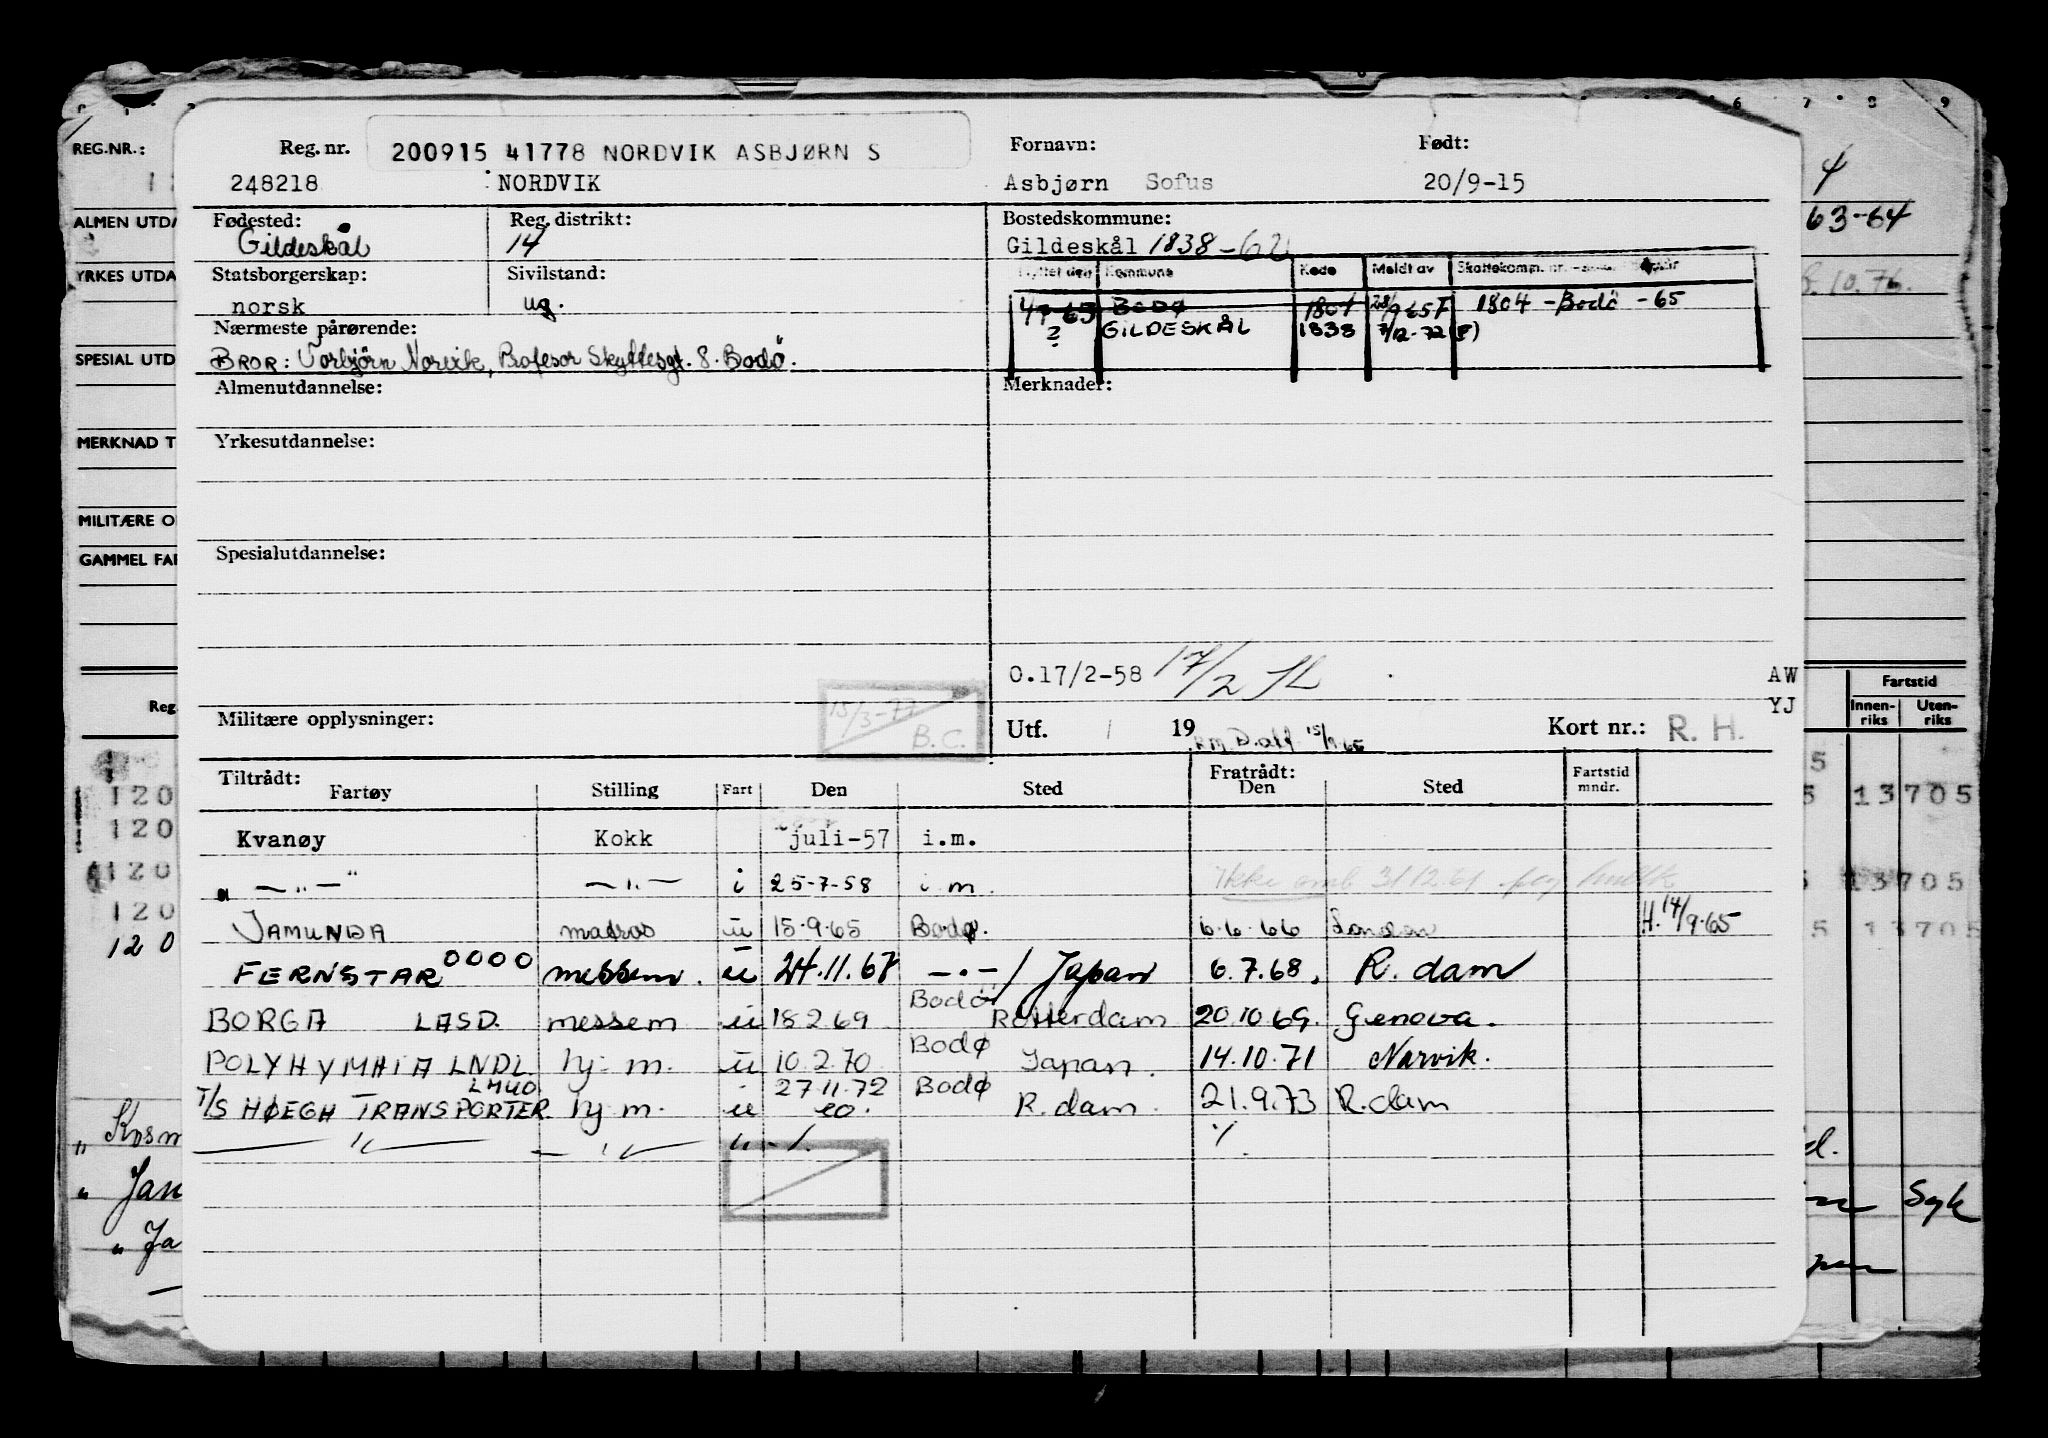 6 7 8 9
REG.NR.:
Reg. nr.
200915 41778 NORDVIK ASBJØRN S
Fornavn:
Født:
248218
NORDVIK
Asbjørn Sofus
20/9-15
4
ALMEN UTDA
Fødested:
Gildeskål
Reg. distrikt:
14
Bostedskommune:
Gildeskål 1838-62
63-64
YRKES UTDA
Statsborgerskap:
norsk
Sivilstand:
ug.
Flyttet den Kommune Kode Meldt av Skattekomm. nr.
8.10.76.
47-65 BODØ 1804 28/9-65F 1804 - Bodö - 65
? GILDESKÅL 1838 7/12-72 (F)
Nærmeste pårørende:
SPESIAL UTD
BROR: Torbjörn Norvik, Profesor Skyttesgt. 8. Bodö.
Almenutdannelse:
Merknader:
MERKNAD T
Yrkesutdannelse:
MILITÆRE O
GAMMEL FAR
Spesialutdannelse:
O.17/2-58 17/2
AW
YJ
Fartstid
Innen-riks
Uten-riks
Reg.
Militære opplysninger:
15/3-77
B.C.
Utf. 19
Kort nr.: R. H.
Tiltrådt:
Fartøy Stilling Fart Den Sted
Fratrådt:
Den Sted
Fartstid mndr.
120
5 13705
Kvanøy Kokk juli-57 i.m.
120
" — " — " — " — i 25-7-58 i m. Ikke omb 31.12.61
120
5 13705
JAMUNDA matros u 15-9-65 Bodø. 6.6.66 London H. 14/9-65
120
5 13705
120
FERNSTAR 0000 messem. u 24.11.67 — " — / Japan 6.7.68. R. dam
BORGA LASD. messem u 18.2.69 Bodö Rotterdam 20.10.69. Genova.
POLYHYMHIA LNDL hj. m. u 10.2.70 Bodø Japan. 14.10.71 Narvik.
LMUO 27.11.72 Bodø
T/S HØEGH TRANSPORTER hj m. u eo. R. dam 21.9.73 R.dam
— " — — " — " - /. /.
" Kosm
d.
" Jan
Syk
" Ja